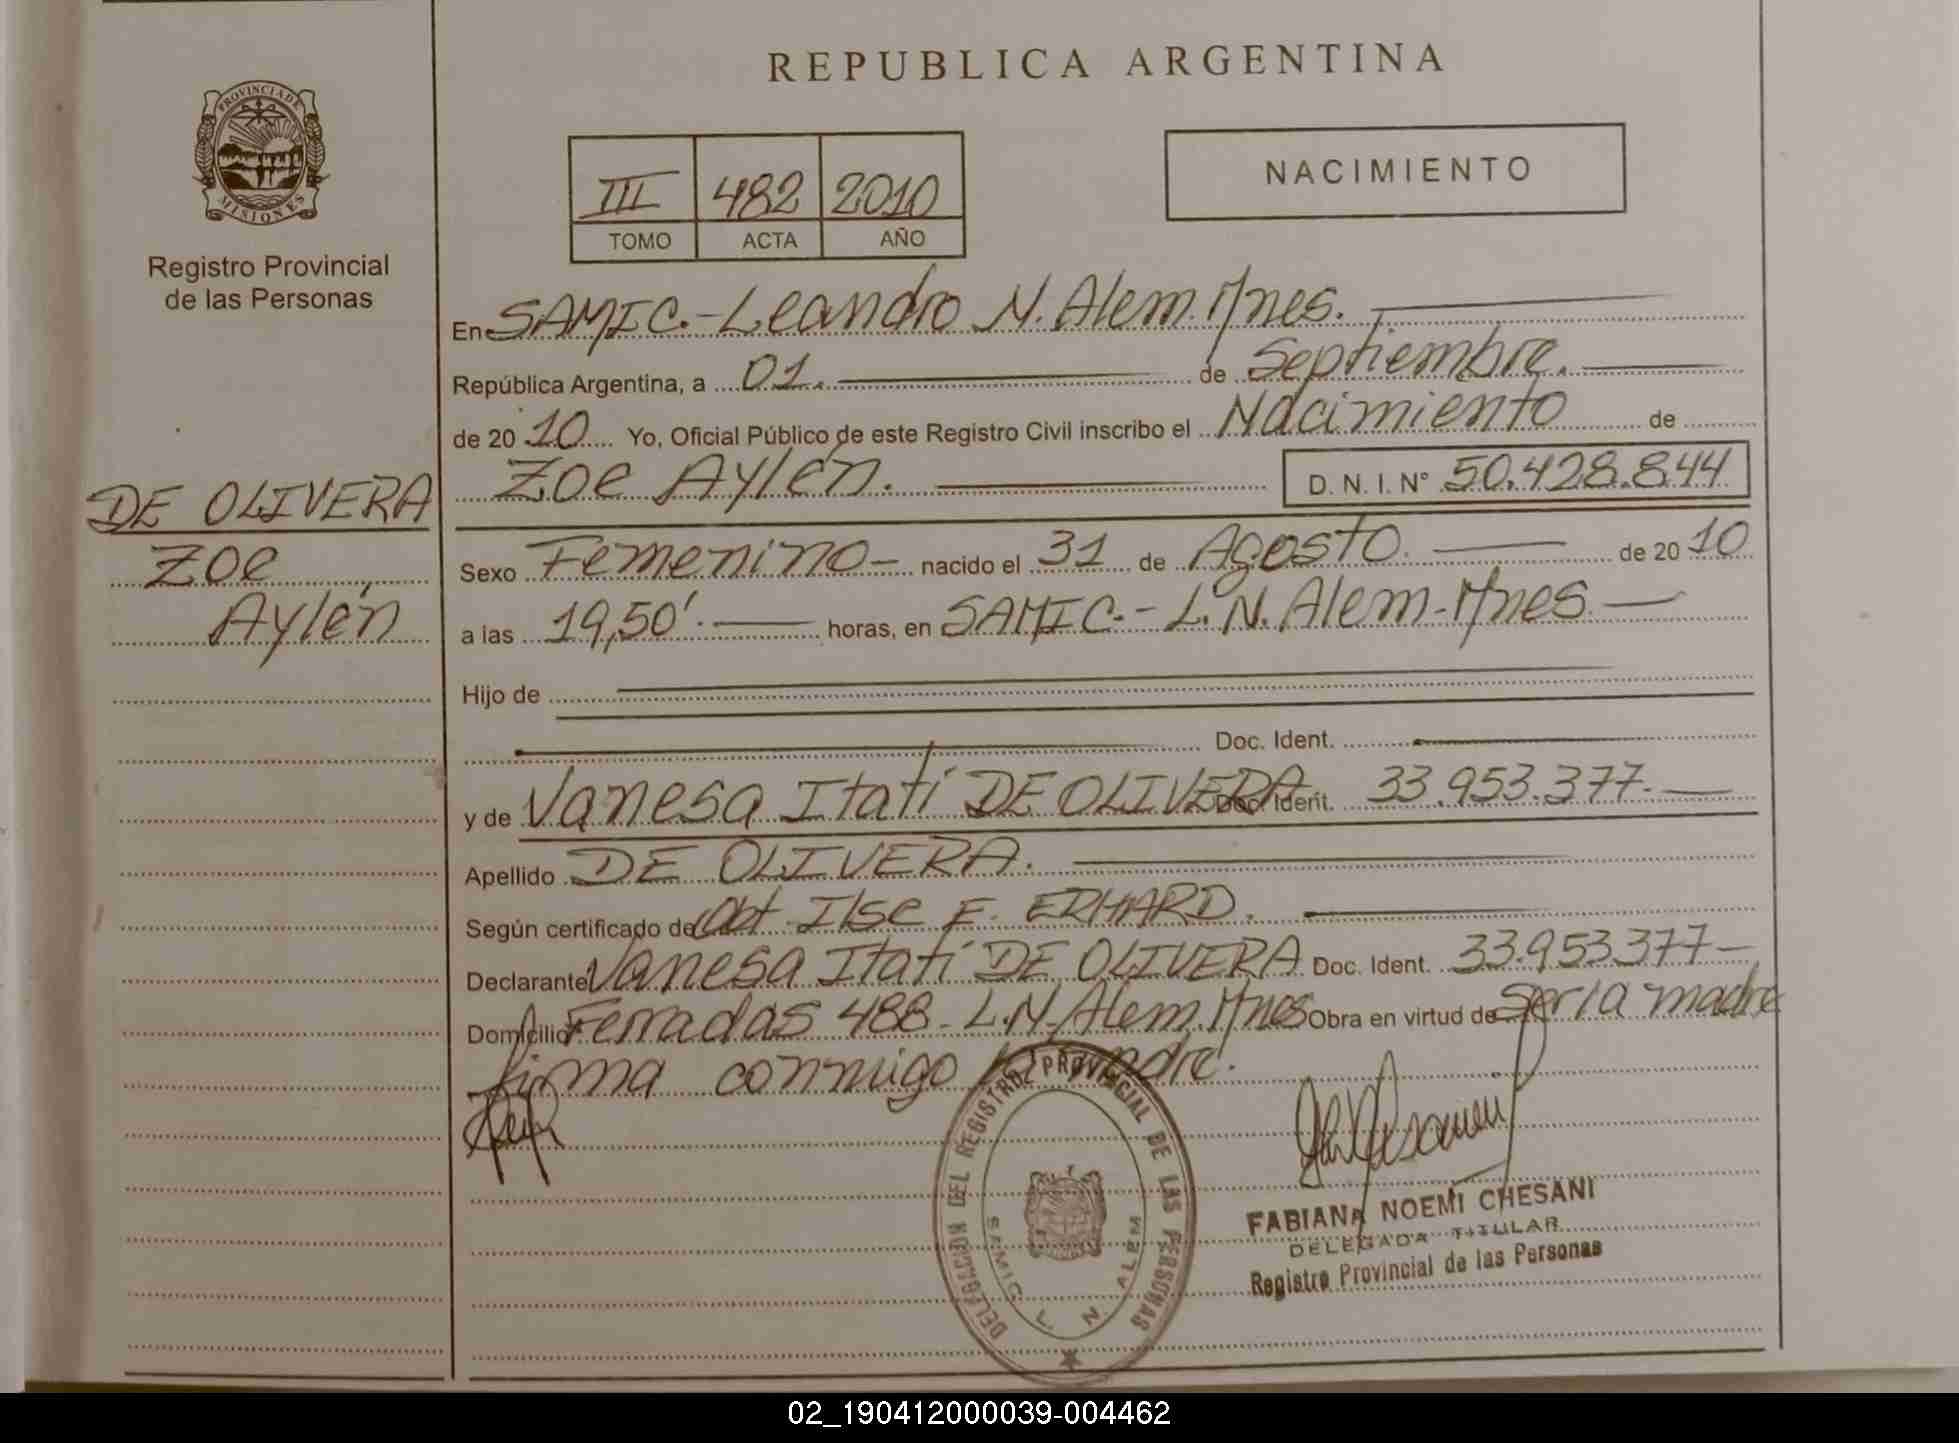 REPUBLICA ARGENTINA
PROVINCIA DE MISIONES
Registro Provincial
de las Personas
III 482 2010
TOMO ACTA AÑO
NACIMIENTO
En SAMIC.-Leandro N. Alem. Mnes.
República Argentina, a 01. de Septiembre.
de 20 10 Yo, Oficial Público de este Registro Civil inscribo el Nacimiento de
Zoe Aylén. D. N. I. N° 50.428.844
DE OLIVERA
Zoe
Aylén
Sexo Femenino- nacido el 31 de Agosto. de 20 10
a las 19,50'. horas, en SAMIC.- L. N. Alem-Mnes
Hijo de
Doc. Ident.
y de Vanesa Itatí DE OLIVERA Doc. Ident. 33.953.377.
Apellido DE OLIVERA.
Según certificado de Obt Ilse F. ERHARD.
Declarante Vanesa Itatí DE OLIVERA Doc. Ident. 33.953.377-
Domicilio Ferradas 488- L.N. Alem. Mnes Obra en virtud de Ser la madre
firma conmigo la madre.
DELEGACION DEL REGISTRO PROVINCIAL DE LAS PERSONAS
SAMIC L. N. ALEM
FABIANA NOEMI CHESANI
DELEGADA TITULAR
Registro Provincial de las Personas
02_190412000039-004462